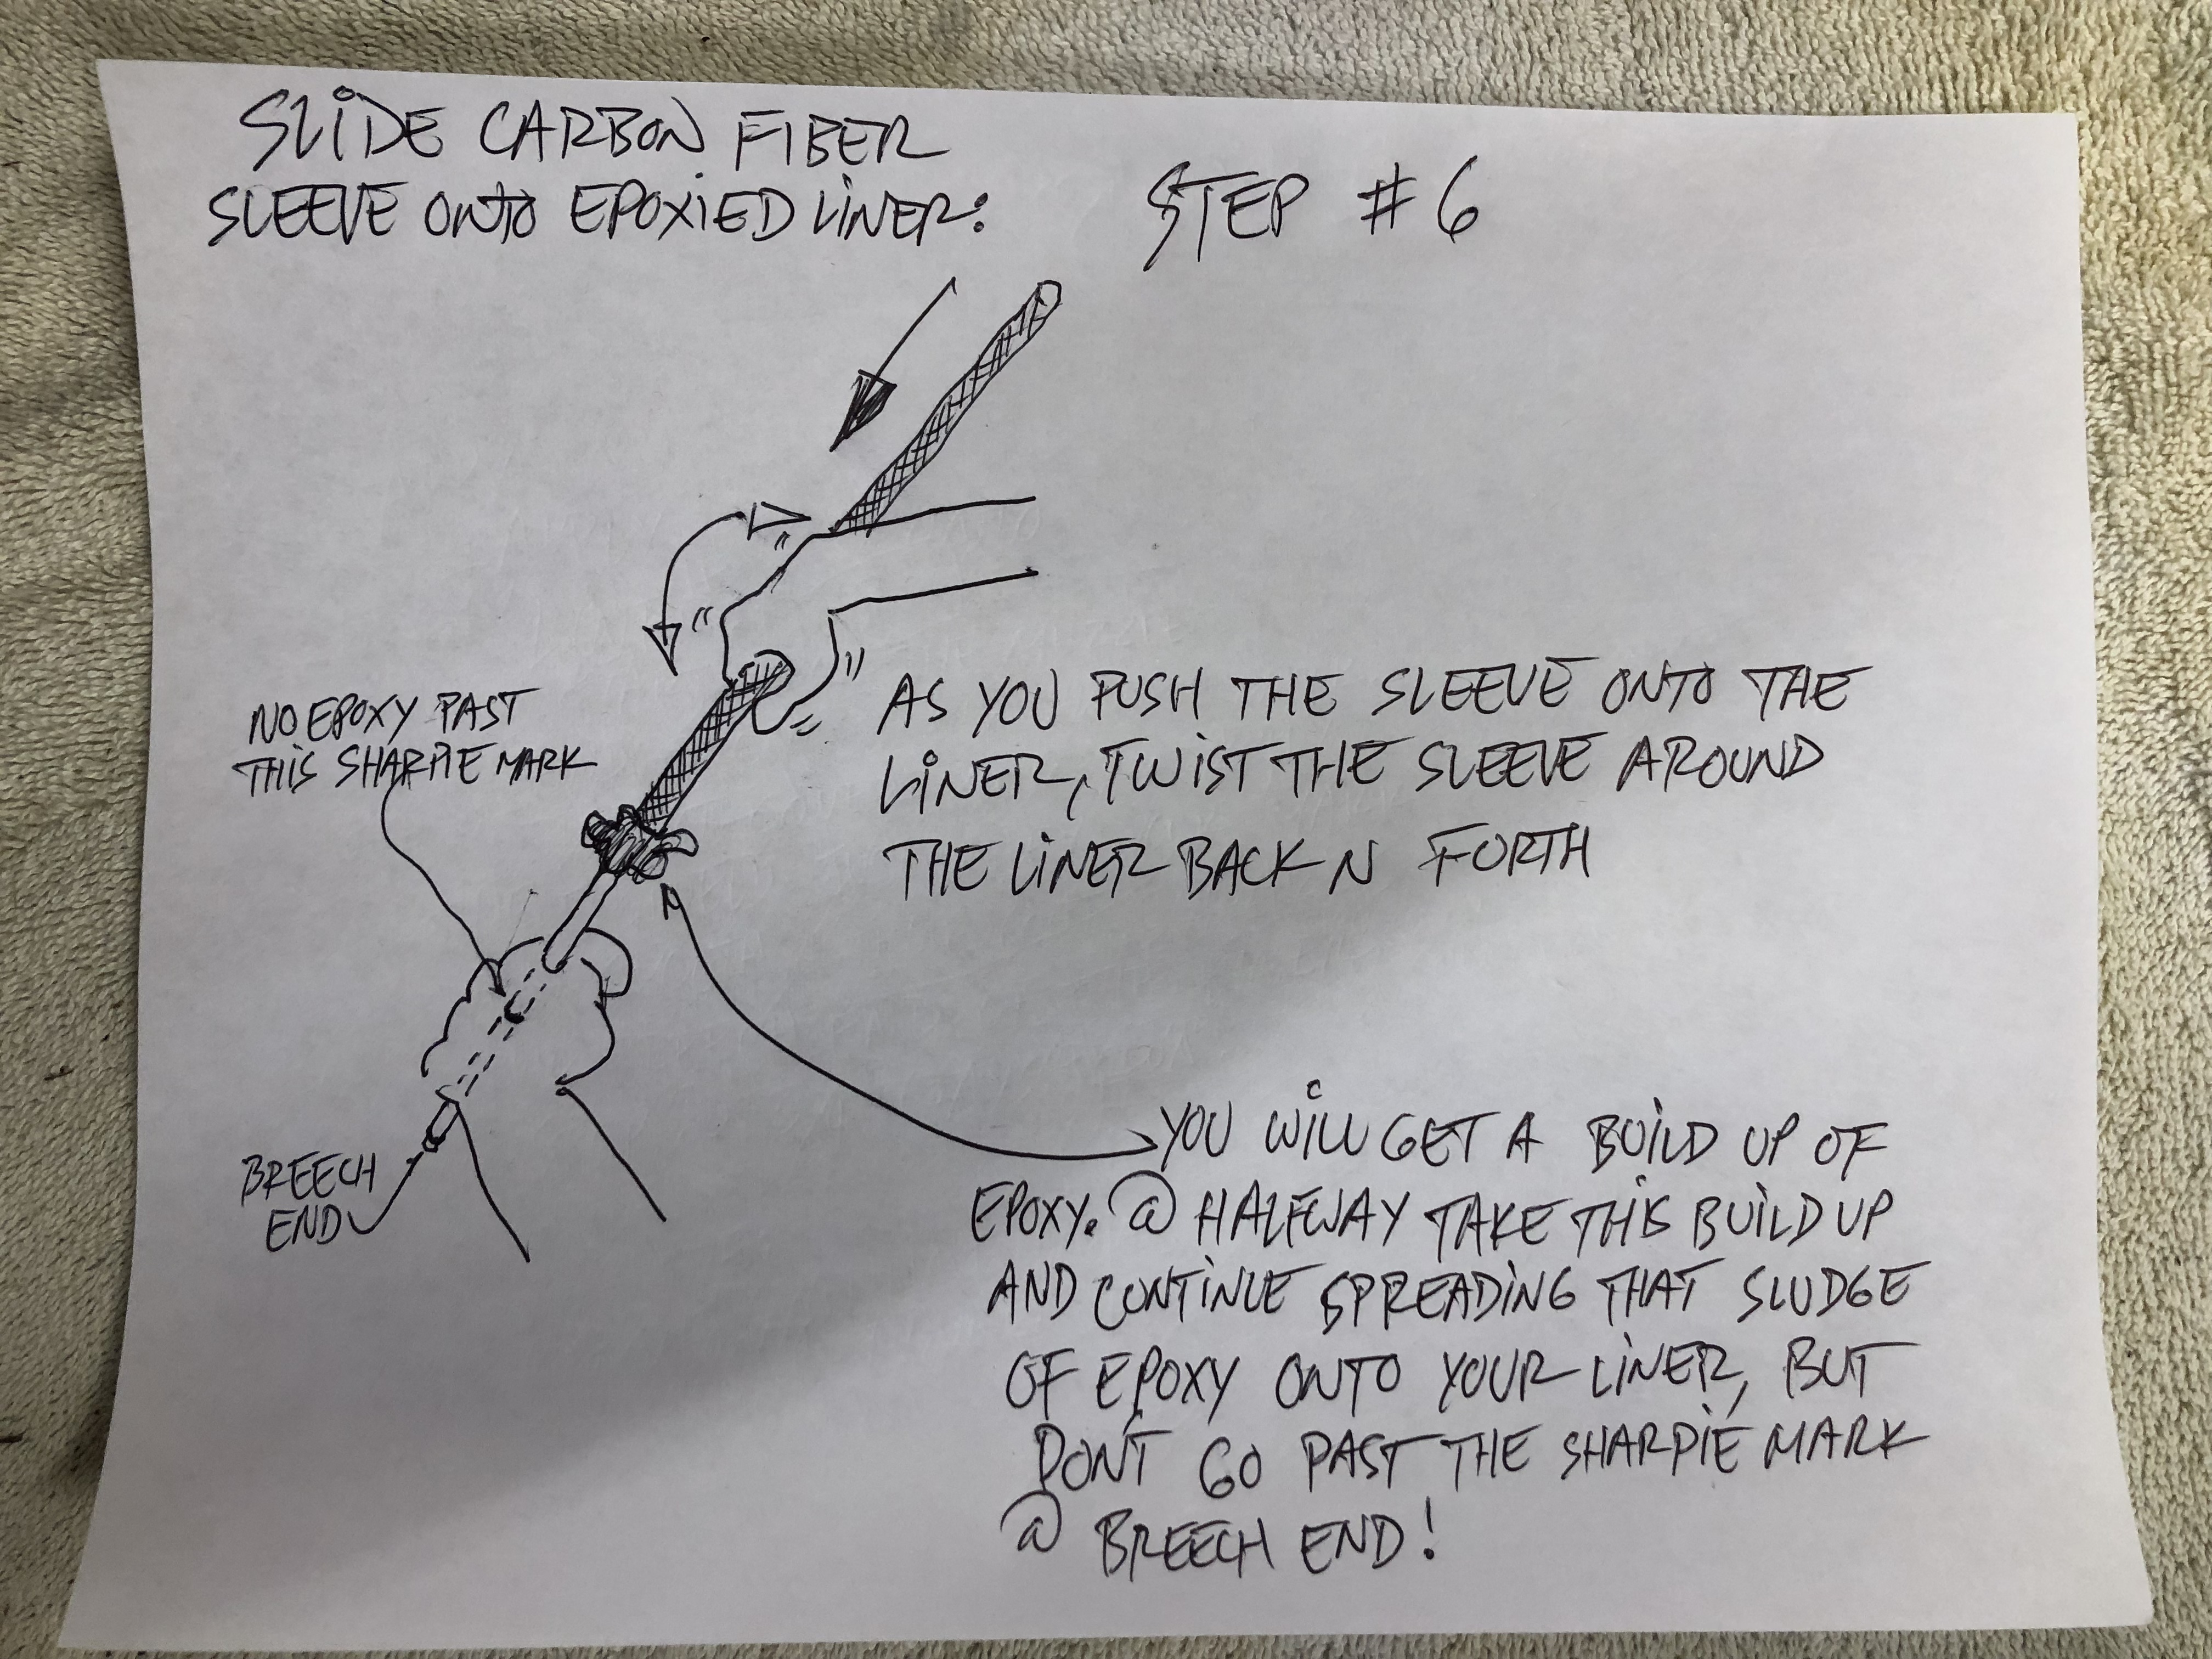 SLIDE CARBON FIBER
SLEEVE ONTO EPOXIED LINER:
STEP #6
NO EPOXY PAST
THIS SHARPIE MARK
AS YOU PUSH THE SLEEVE ONTO THE
LINER, TWIST THE SLEEVE AROUND
THE LINER BACK N FORTH
BREECH
END
YOU WILL GET A BUILD UP OF
EPOXY. @ HALFWAY TAKE THIS BUILD UP
AND CONTINUE SPREADING THAT SLUDGE
OF EPOXY ONTO YOUR LINER, BUT
DON'T GO PAST THE SHARPIE MARK
@ BREECH END!